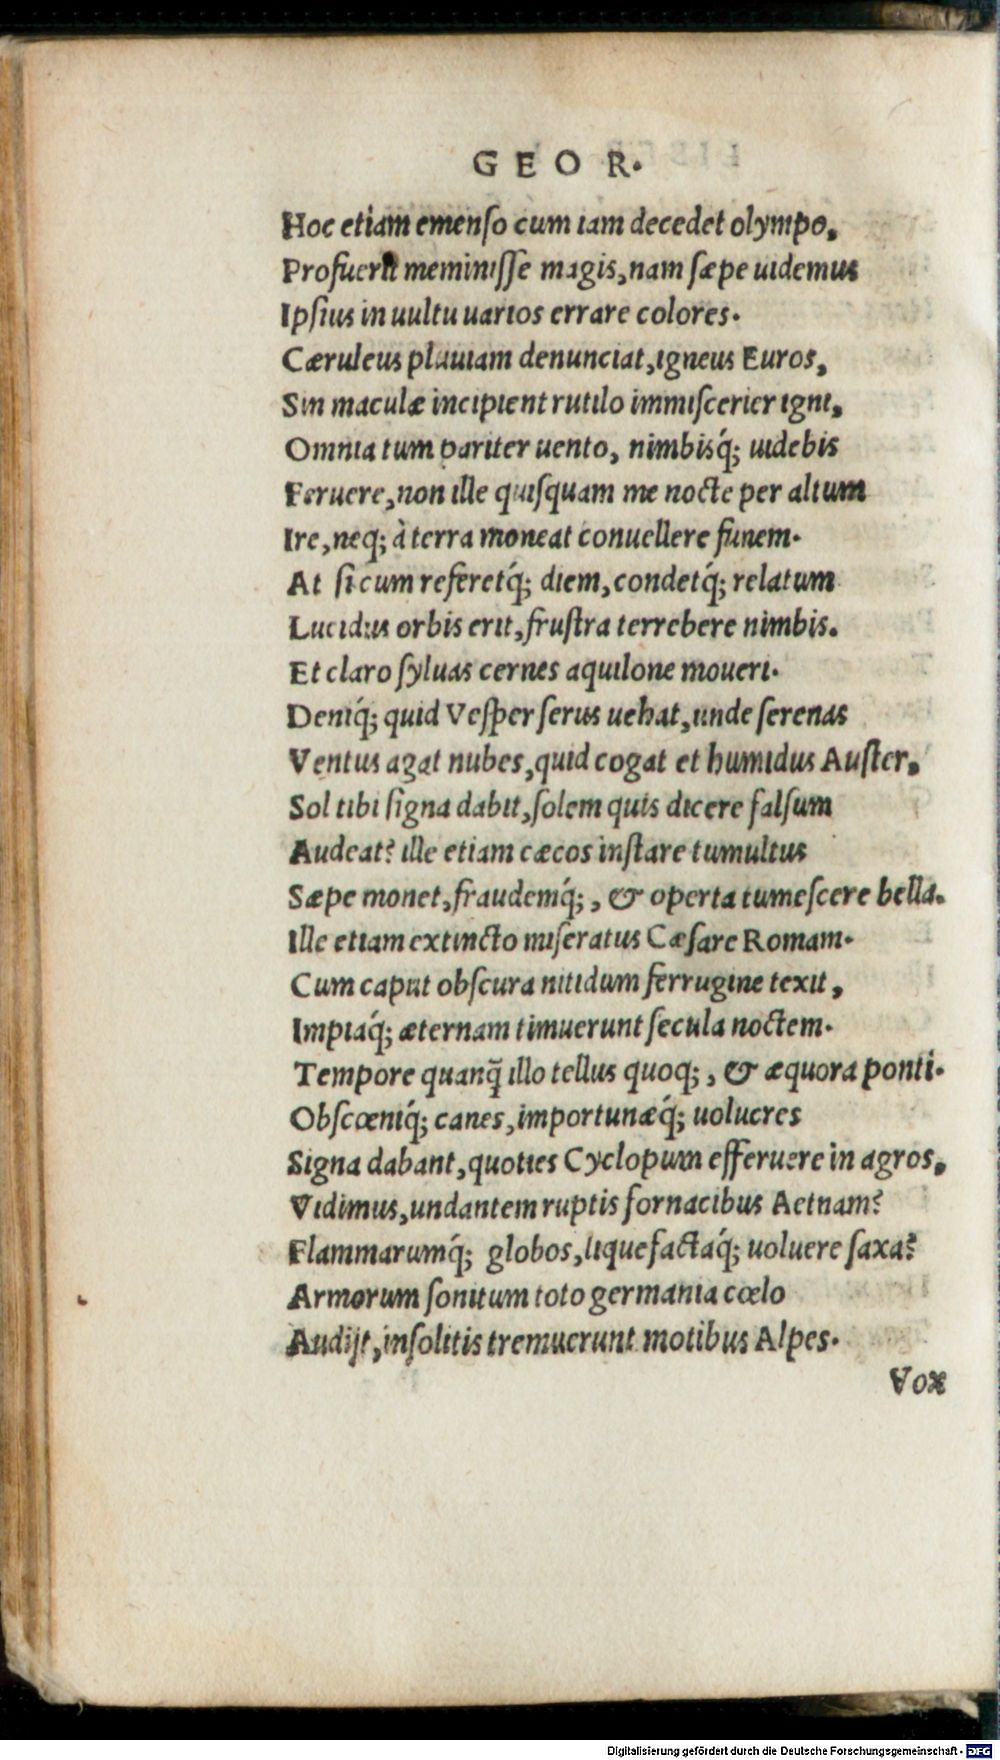 GEOR.
Hoc etiam emenso cum iam decedet olympo,
Profuerit meminisse magis, nam sæpe uidemus
Ipsius in uultu uarios errare colores.
Cæruleus pluuiam denunciat, igneus Euros,
Sin maculæ incipient rutilo immiscerier igni,
Omnia tum pariter uento, nimbisq́; uidebis
Feruere, non illa quisquam me nocte per altum
Ire, neq; à terra moneat conuellere funem.
At si cum referetq́; diem, condetq́; relatum
Lucidus orbis erit, frustra terrebere nimbis.
Et claro syluas cernes aquilone moueri.
Deniq́; quid Vesper serus uehat, unde serenas
Ventus agat nubes, quid cogat et humidus Auster,
Sol tibi signa dabit, solem quis dicere falsum
Audeat? ille etiam cæcos instare tumultus
Sæpe monet, fraudemq́;, & operta tumescere bella.
Ille etiam extincto miseratus Cæsare Romam.
Cum caput obscura nitidum ferrugine texit,
Impiaq́; æternam timuerunt secula noctem.
Tempore quanq̃ illo tellus quoq;, & æquora ponti.
Obscœniq́; canes, importunæq́; uolucres
Signa dabant, quoties Cyclopum efferuere in agros,
Vidimus, undantem ruptis fornacibus Aetnam?
Flammarumq́; globos, liquefactaq́; uoluere saxa?
Armorum sonitum toto germania cœlo
Audijt, insolitis tremuerunt motibus Alpes.
Vox
Digitalisierung gefördert durch die Deutsche Forschungsgemeinschaft - DFG